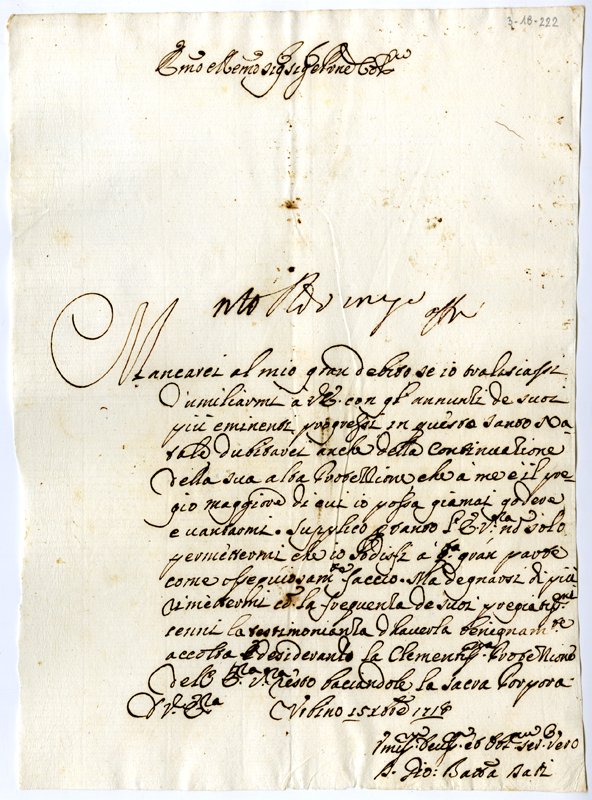 3-18-222
Emo e Remo Sig Sig e Prne Col
Mancarei al mio gran debito se io tralasciassi
d'umiliarmi à V.E. con gl'annunti de suoi
più eminenti progressi in questo Santo Na-
tale dubitarei anche della continuatione
della sua alta Protettione che à me è il pre-
gio maggiore di qui io possa giamai godere
e vantarmi. Supplico l'E. Vra nò solo
permettermi che io sodisfi à gran parte
come ossequiosamte faccio. Ma degnarsi di più
rimettermi cò la frequenta de suoi pregiatissmi
cenni la testimonianta d'haverla benignamte
accolta e desiderando la Clementissma Protettione
dell' E. Vra resto baciandole la sacra Porpora
D V. Ema Urbino 15 Xbre 1718
Umiss. Devss. et obl ser. vero
Gio: Batta